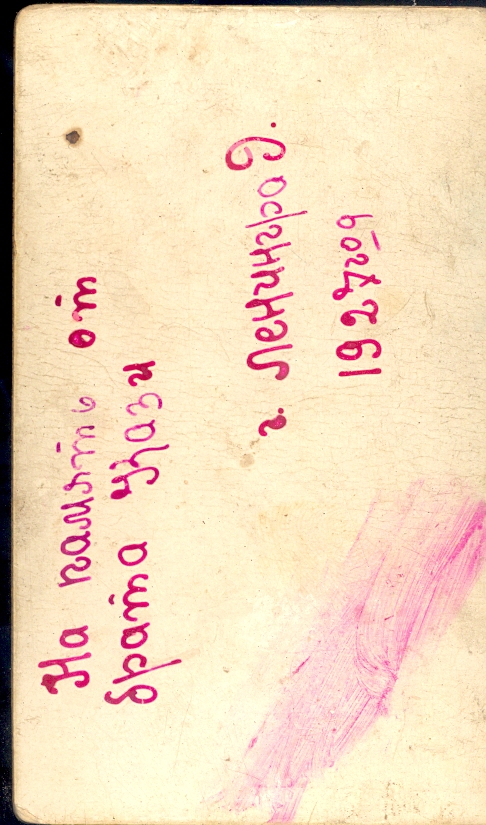 На память от
брата
г. Ленинград.
1927 год